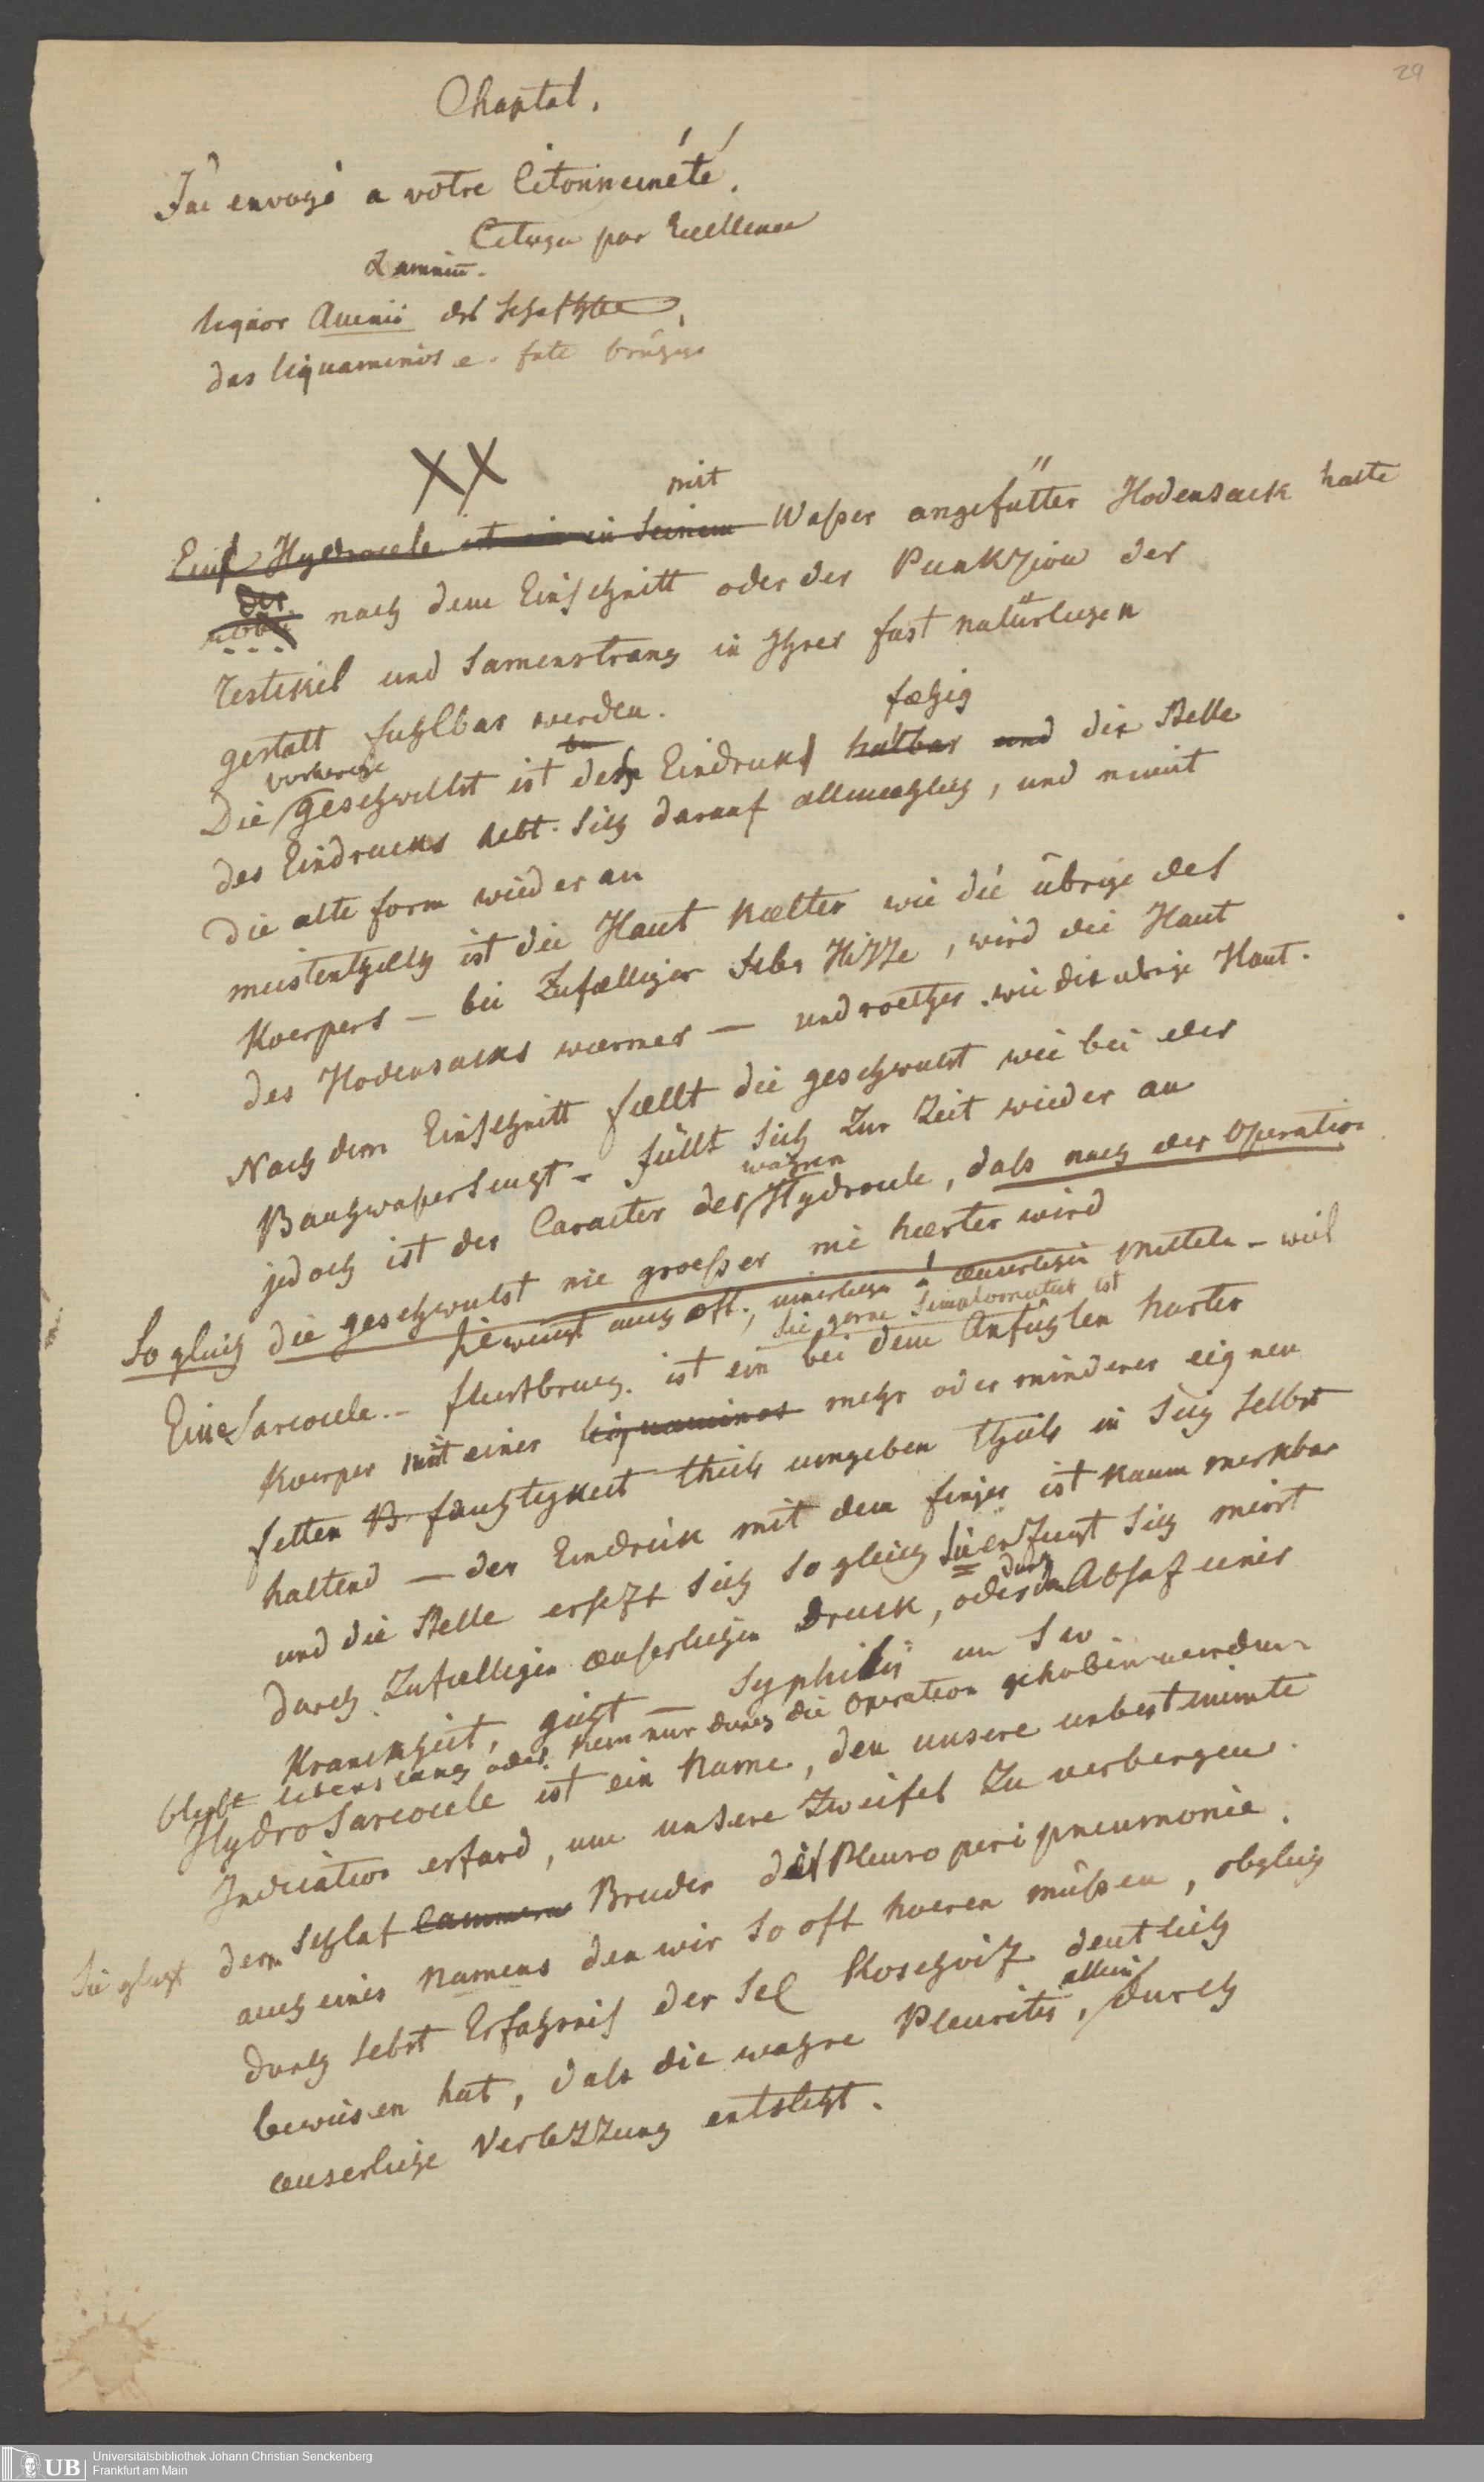 29
Chaptal.
J'ai envoyé a votre
par Excellence
liquor des
das liquaminis
XX
mit
Eine Hydrocele ist ein in seinem Waßer angefülter Hodensack
Der
nach dem Einschnitt oder der Punkzion der
Testikel und Samenstrang in Ihrer fast natürlichen
gestalt fuhlbar werden.
fæhig
vorherige
Die geschwulst ist des Eindruks haltbar und die Stelle
des Eindrucks hebt sich darauf allmæhlich, und nimt
die alte form wieder an
meistentheils ist die Haut kælter wie die übrige des
Koerpers – bei Zufælliger Hizze, wird die Haut
des Hodensacks wærmer – und roether wie die ubrige Haut.
Nach dem Einschnitt fællt die geschwulst wie bei der
Bauchwaßersucht – füllt sich Zur Zeit wieder an
wahren
jedoch ist der Caracter der Hydrocele, daß nach der Operation
So gleich die geschwulst nie groeßer nie hærter wird
auch oft, mitteln – weil
Sie gerne ist
Eine Sarcocele – fleischbruch. ist ein bei dem Anfuhlen harter
Koerper mit einer liquaminos mehr oder minderer eignen
fetten feuchtigkeit theils umgeben theils in sich selbst
haltend – der Eindruk mit dem finger ist kaum merkbar
und die Stelle ersezt sich so gleich Sie erzeugt sich meist
durch
durch Zufælligen æußerlichen Druck, oder Absaz einer
Krankheit, gicht – Syphilis
bleibt lebenslang oder kan nur durch die Operation gehoben werden
Hydrosarcocele ist ein Name, den unsere unbestimmte
Indication erfand, um unsere Zweifel Zu verbergen.
Sie gleicht dem Schlaf Cammern Bruder der Pleuroperipneumonie.
auch eines Namens den wir so oft hoeren müßen, obgleich
durch selbst Erfahrniß der Sel deutlich
allein
bewiesen hat, daß die wahre Pleuritis, durch
æuserliche Verlezzung entsteht.
Universitätsbibliothek Johann Christian Senckenberg
Frankfurt am Main
UB